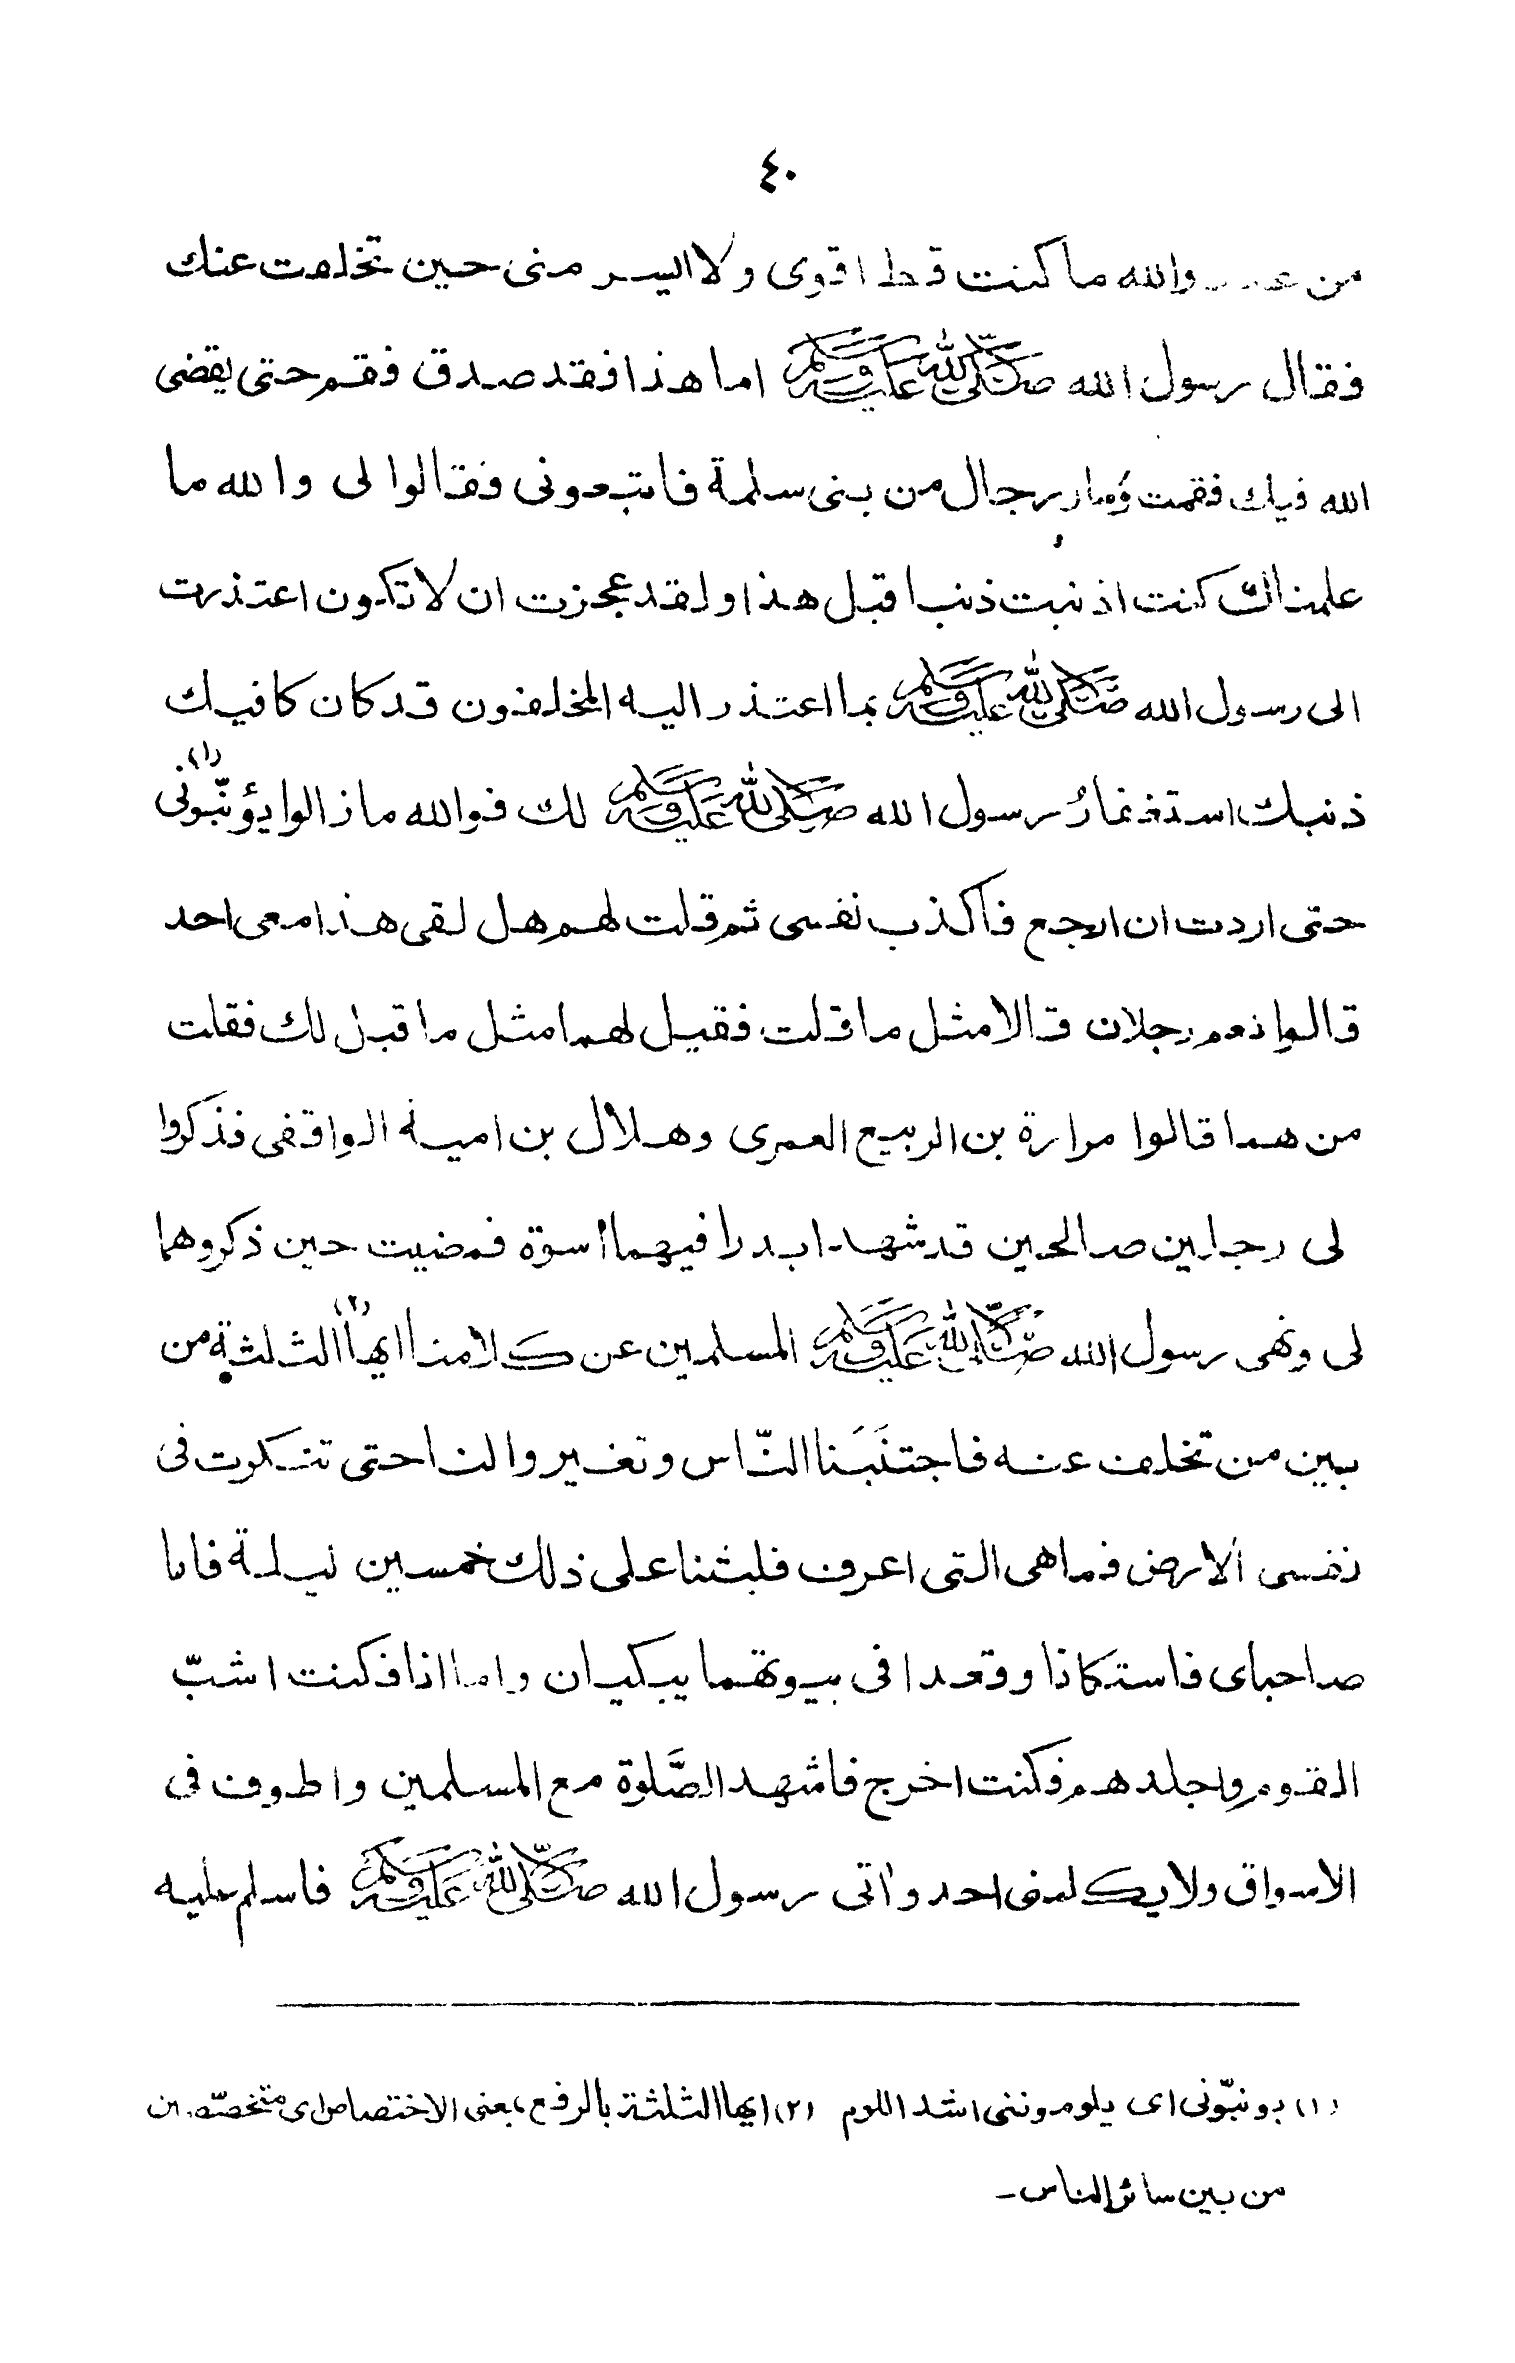 ٤٠
من والله ما كنت قط اقوى ولا ايسر منى حين تخلفت عنك
فقال رسول الله صلى الله عليه وسلم اما هذا فقد صدق فقم حتى يقضى
الله فيك فقمت وثار رجال من بنى سلمة فاتبعونى فقالوا لى والله ما
علمناك كنت اذنبت ذنبا قبل هذا ولقد عجزت ان لا تكون اعتذرت
الى رسول الله صلى الله عليه وسلم بما اعتذر اليه المخلفون قد كان كافيك
ذنبك استغفارُ رسول الله صلى الله عليه وسلم لك فوالله ما زالوا يؤنّبونى (١)
حتى اردت ان ارجع فاكذب نفسى ثم قلت لهم هل لقى هذا معى احد
قالوا نعم رجلان قالا مثل ما قلت فقيل لهما مثل ما قيل لك فقلت
من هما قالوا مرارة بن الربيع العمرى وهلال بن امية الواقفى فذكروا
لى رجلين صالحين قد شهدا بدرا فيهما اسوة فمضيت حين ذكروهما
لى ونهى رسول الله صلى الله عليه وسلم المسلمين عن كلامنا ايها (٢) الثلثة من
بين من تخلف عنه فاجتنَبَنا النّاس وتغيروا لنا حتى تنكرت فى
نفسى الارض فما هى التى اعرف فلبثنا على ذلك خمسين ليلة فاما
صاحباى فاستكانا وقعدا فى بيوتهما يبكيان واما انا فكنت اشبّ
القوم واجلدهم فكنت اخرج فاشهد الصَّلوة مع المسلمين واطوف فى
الاسواق ولا يكلمنى احد واٰتى رسول الله صلى الله عليه وسلم فاسلم عليه
(١) يونبّونى اى يلوموننى اشد اللوم (٢) ايها الثلثة بالرفع بمعنى الاختصاص اى متخصّصين
من بين سائر الناس ـ